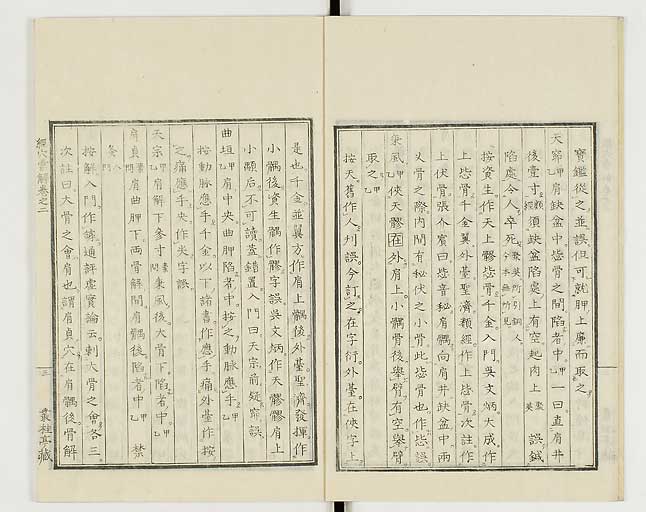 寶鑑從之並誤但可就胛上廉而取之
天窌甲乙肩缺盆中毖骨之間陷者中甲乙一曰直肩井
後壹寸須缺盆陷處上有空起肉上誤鍼
陷處令人卒死
按資生作天上髎毖骨千金入門吳文炳大成作
上毖骨千金翼外臺聖濟類經作上毖骨次註作
上伏骨張介賓曰毖音秘肩髃向肩井缺盆中兩
乂骨之際內間有秘伏之小骨此毖骨也作毖誤
秉風甲乙俠天髎在外肩上小髃骨後舉臂有空舉臂
取之甲乙
按天舊作人刋誤今訂之在字衍外臺在俠字上
是也千金並翼方作肩上髃後外臺聖濟發揮作
小髃後資生髃作髎字誤吳文炳作天髎髎肩上
小顒后不可讀蓋錯置入門曰天宗前疑寫誤
曲垣甲乙肩中央曲胛陷者中按之動脉應手甲乙
按動脉應手千金以下諸書作應手痛外臺作按
之痛應手央作夹字誤
天宗甲乙秉風後大骨下陷者中甲乙
肩貞肩曲胛下兩骨解間肩髃後陷者中甲乙禁
按解入門作罅通評虛實論云刺大骨之會各三
次註曰大骨之會肩也謂肩貞穴在肩髃後骨解
經穴彙解卷之二
三
叢桂亭藏